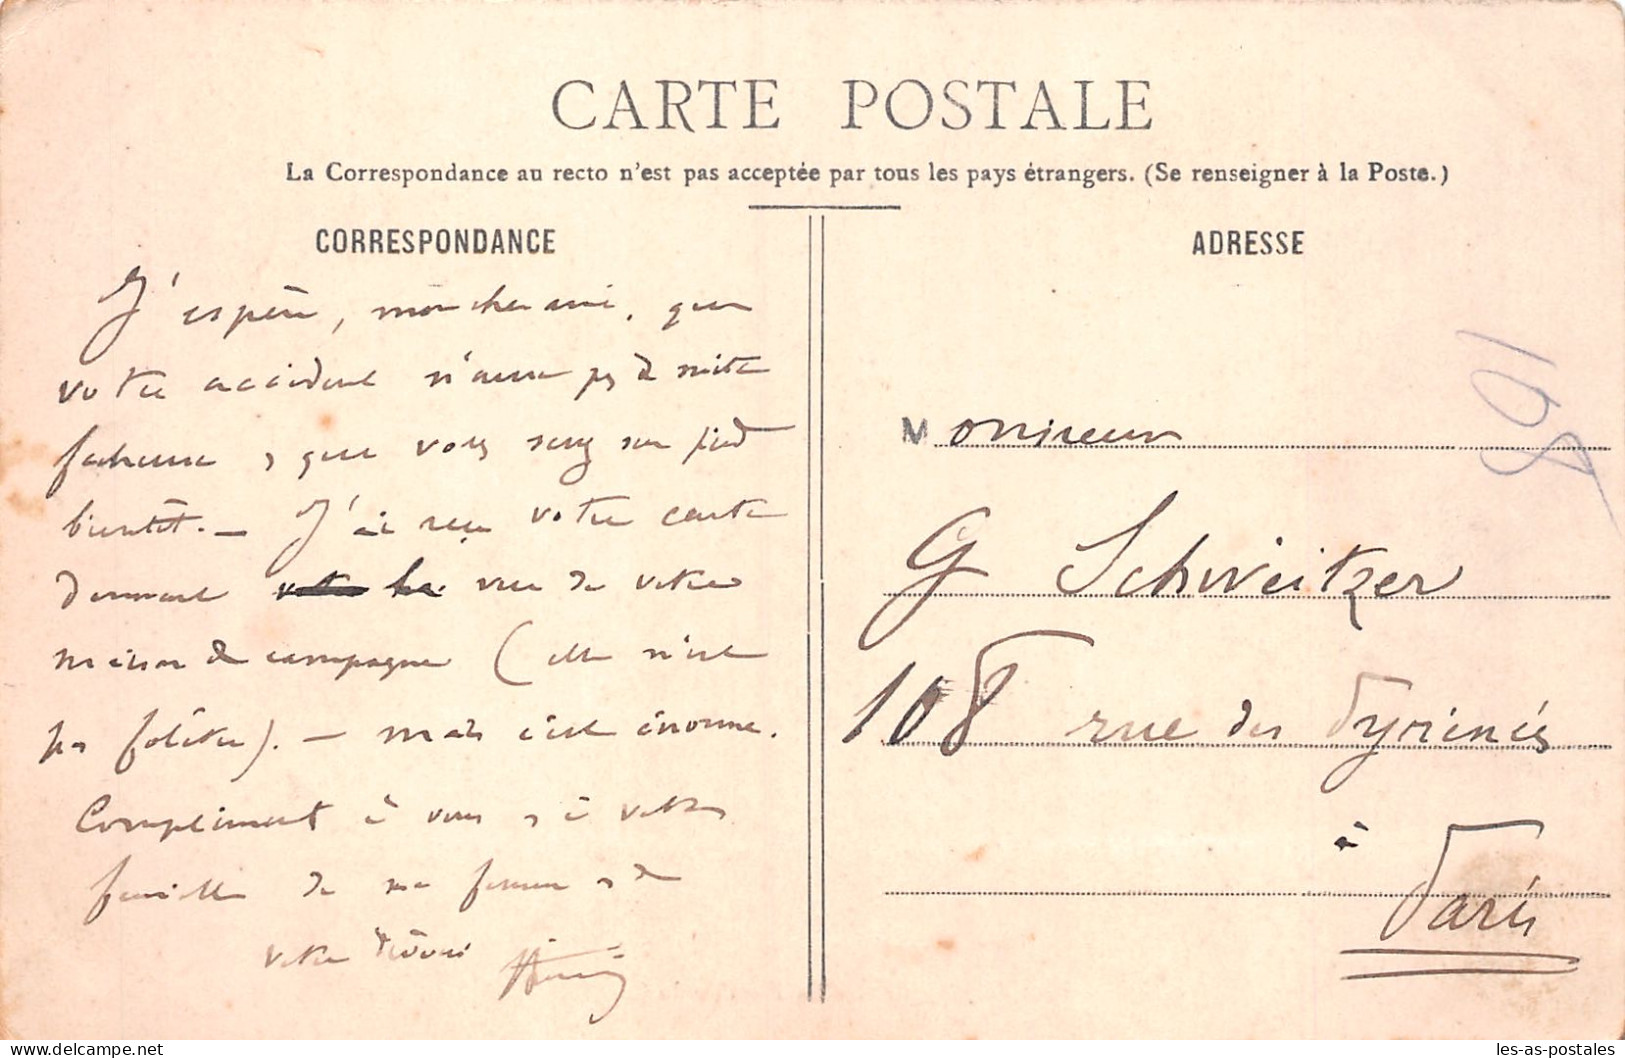 CARTE POSTALE
La Correspondance au recto n'est pas acceptée par tous les pays étrangers. (Se renseigner à la Poste.)
CORRESPONDANCE
J'espère, mon cher ami, que
votre accident n'aura pas de suite
facheuse, que vous serez sur pied
bientôt. — J'ai reçu votre carte
donnant votre la vue de votre
maison de campagne (elle n'est
pas folâtre). — mais c'est énorme.
Compliment à vous, à votre
famille de ma femme, de
votre dévoué
ADRESSE
Monsieur
G Schweitzer
108 rue des Pyrénées
à
Paris
108
les-as-postales